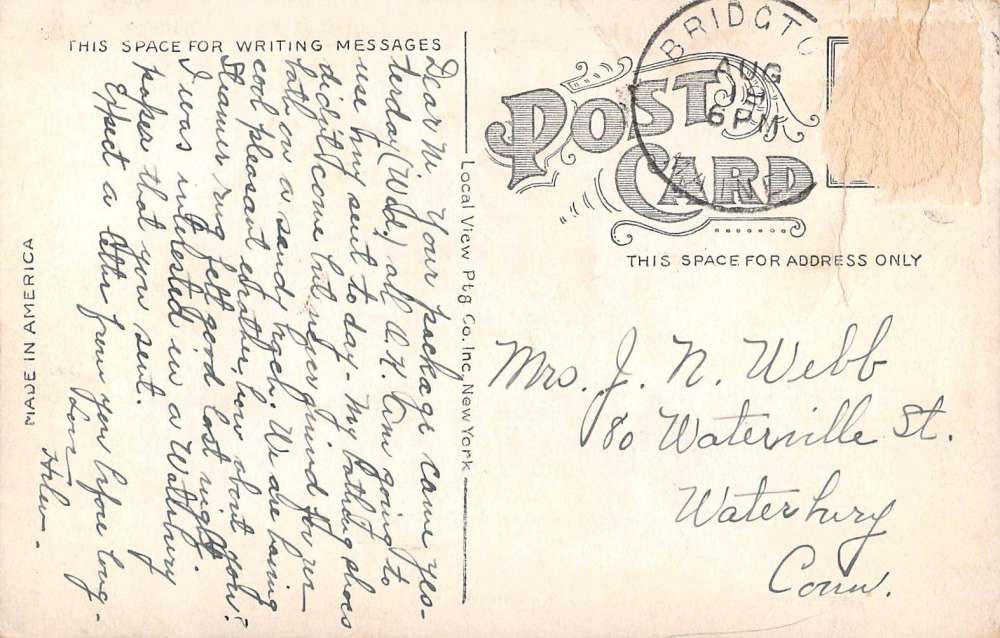 THIS SPACE FOR WRITING MESSAGES
Dear M Your package came yes-
terday (Wed.) at A.M. I'm going to
use my suit today - My bathing shoes
didn't come but never mind for we
bathe on a sandy beach. We are having
cool pleasant weather, how about you?
Steamer rug felt good last night.
I was interested in a Waterbury
paper that you sent.
Expect a letter from you before long -
Love
Helen.
MADE IN AMERICA
Local View Ptg Co. Inc, New York
BRIDGTO
AUG
6 PM
POST CARD
THIS SPACE FOR ADDRESS ONLY
Mrs. J. N. Webb
80 Waterville St.
Waterbury
Conn.